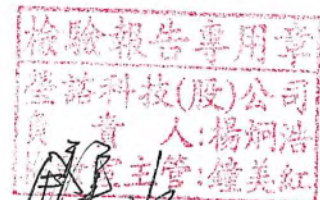 檢驗報告專用章
瑩諮科技(股)公司
負責人:楊炯浩
主管:鐘美紅